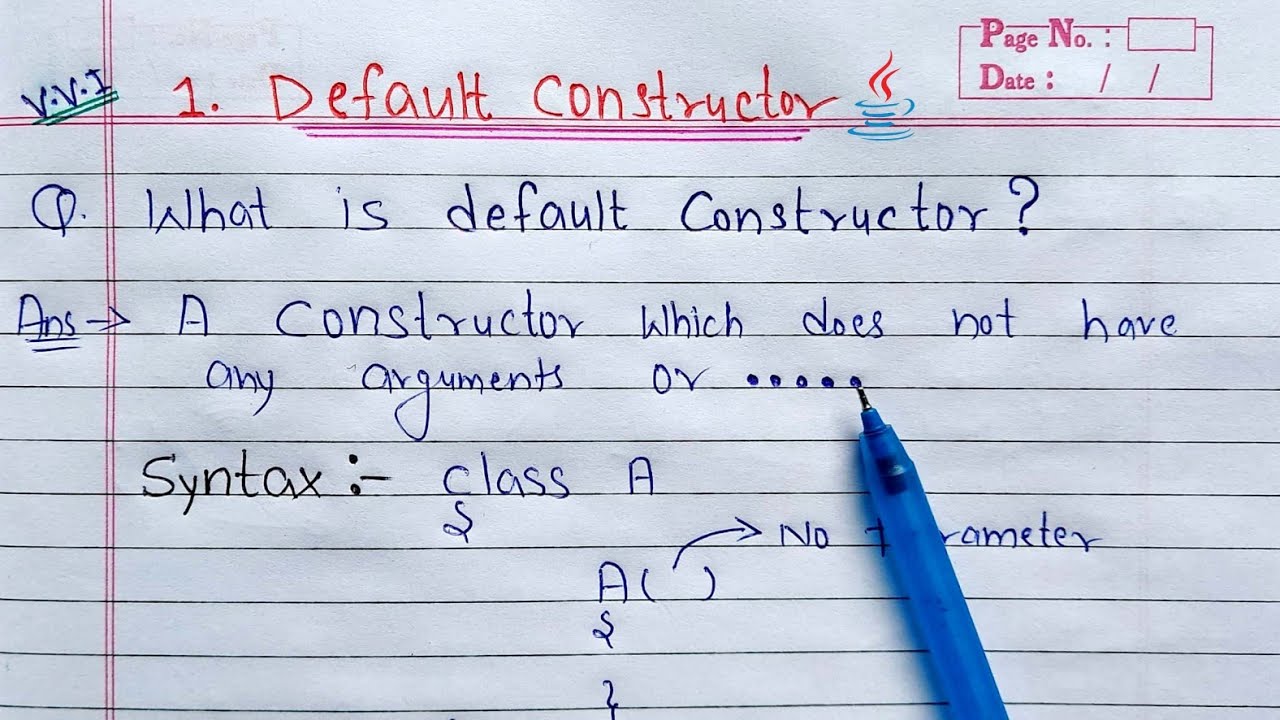 Page No. :
Date : / /
V.V.I 1. Default Constructor
Q. What is default Constructor?
Ans → A Constructor which does not have
any arguments or .....
Syntax :- class A
{
→ No
A( )
{
}